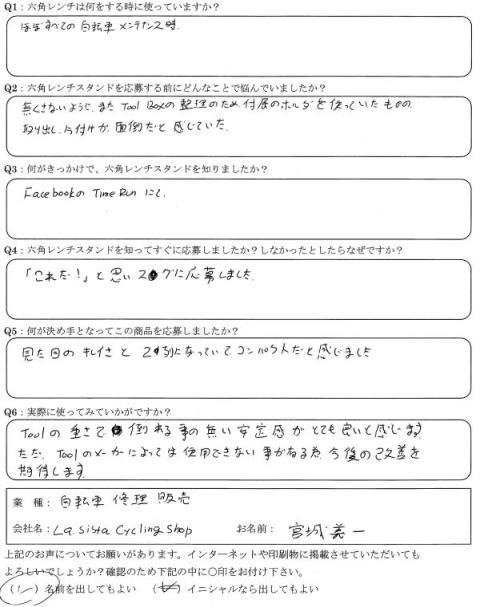 Q1：六角レンチは何をする時に使っていますか？
ほぼすべての自転車メンテナンス時.
Q2：六角レンチスタンドを応募する前にどんなことで悩んでいましたか？
無くさないように、また Tool Boxの整理のため付属のホルダを使っていたものの
取り出し、片付けが面倒だと感じていた.
Q3：何がきっかけで、六角レンチスタンドを知りましたか？
Facebookの Time Run にて.
Q4：六角レンチスタンドを知ってすぐに応募しましたか？しなかったとしたらなぜですか？
「これだ！」と思いスグに応募しました.
Q5：何が決め手となってこの商品を応募しましたか？
見た目のキレイさと 2列になっていてコンパクトだと感じました
Q6：実際に使ってみていかがですか？
Toolの重さで倒れる事の無い安定感がとても良いと感じます
ただ、Toolのメーカーによっては使用できない事がある為 今後の改善を
期待します
業 種：自転車 修理 販売
会社名：La Sista Cycling Shop お名前：宮城 義一
上記のお声についてお願いがあります。インターネットや印刷物に掲載させていただいても
よろしいでしょうか？確認のため下記の中に〇印をお付け下さい。
（ ）名前を出してもよい （ ）イニシャルなら出してもよい